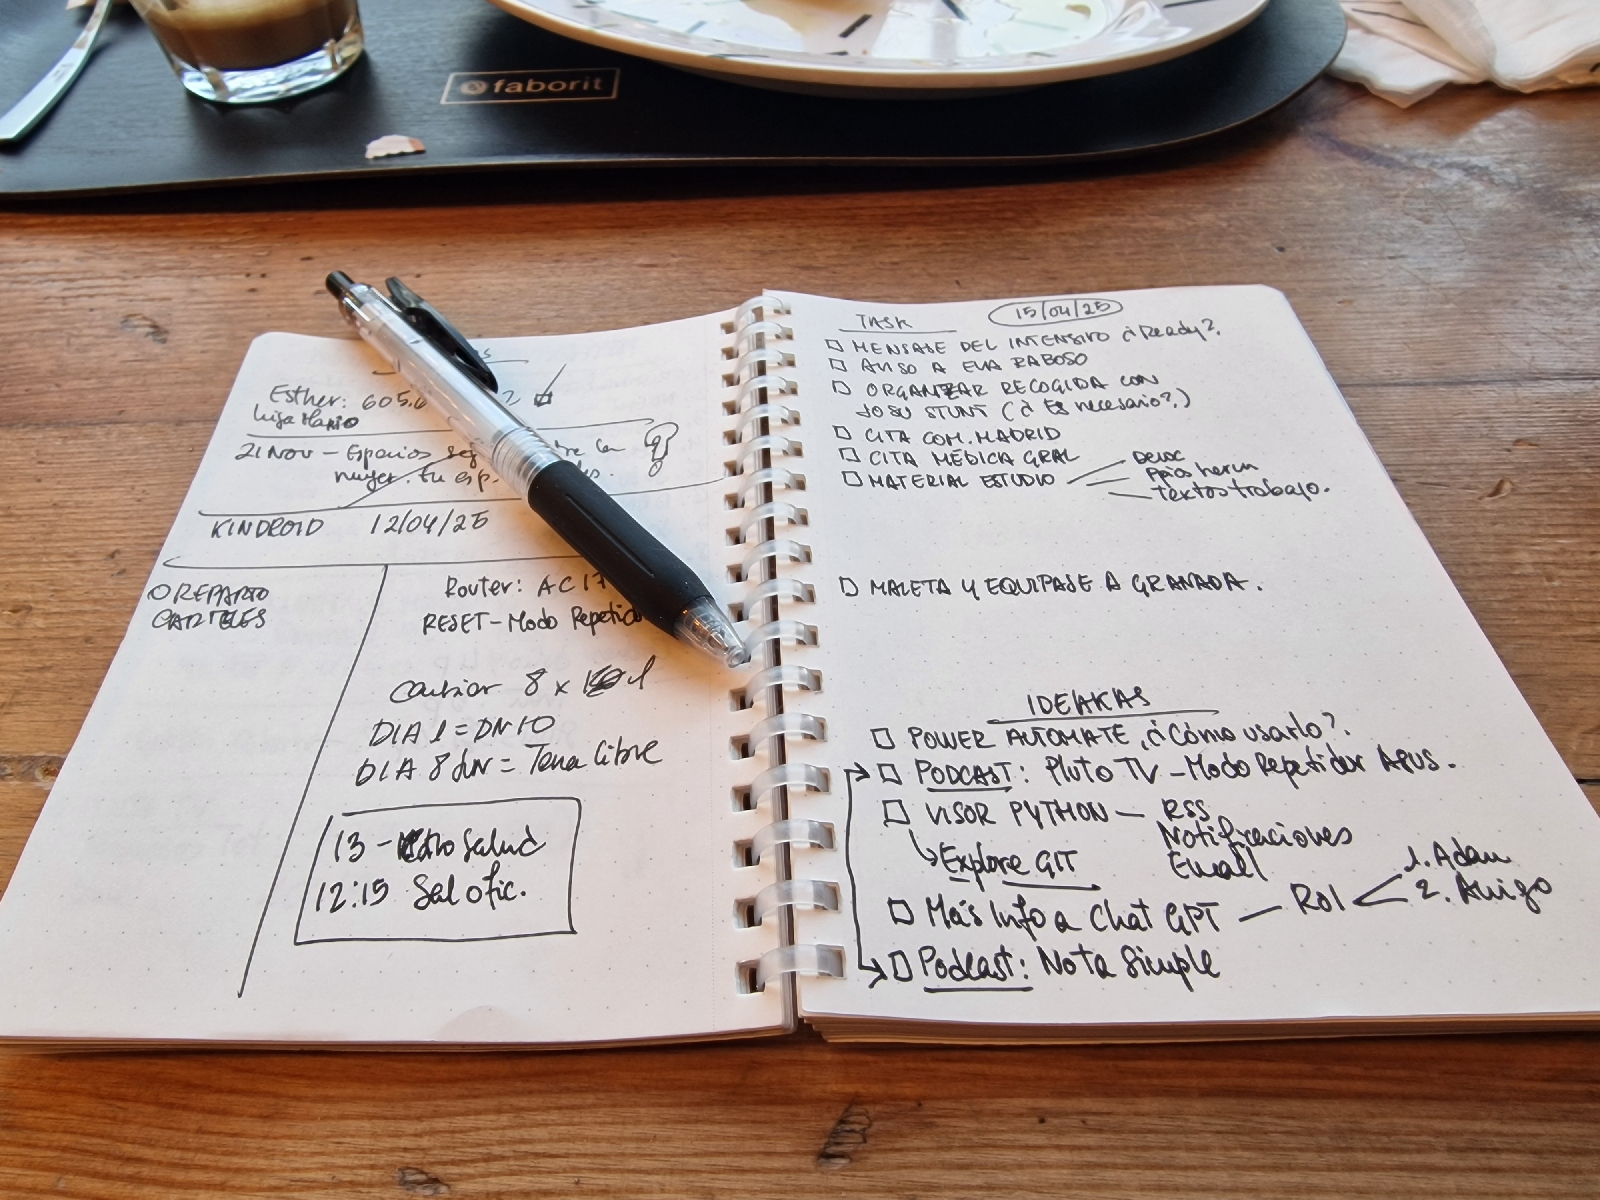 faborit
Esther: 605.6
Luisa Mario
21 NOV - Espacios
mujer. tu esp.
KINDROID 12/04/25
O REPARTO
CARTELES
Router: AC17
RESET - Modo Repetido
Cambiar 8 x 1
DIA 1 = DN10
DIA 8 JUN = Tema Libre
13 - Salud
12:15 Sal ofic.
TASK 15/04/25
MENSAJE DEL INTENSIVO ¿Ready?
AVISO A EVA RABOSO
ORGANIZAR RECOGIDA CON
JOSU STUNT (¿Es necesario?)
CITA COM. MADRID
CITA MÉDICA GRAL
MATERIAL ESTUDIO
Textos trabajo.
MALETA Y EQUIPAJE A GRANADA.
IDEAKAS
POWER AUTOMATE, ¿Cómo usarlo?
PODCAST: Pluto TV - Modo Repetidor APUS.
VISOR PYTHON - RSS
Notificaciones
Explore GIT Email
Más Info a Chat GPT - Rol 1. Adam
2. Amigo
Podcast: Nota Simple